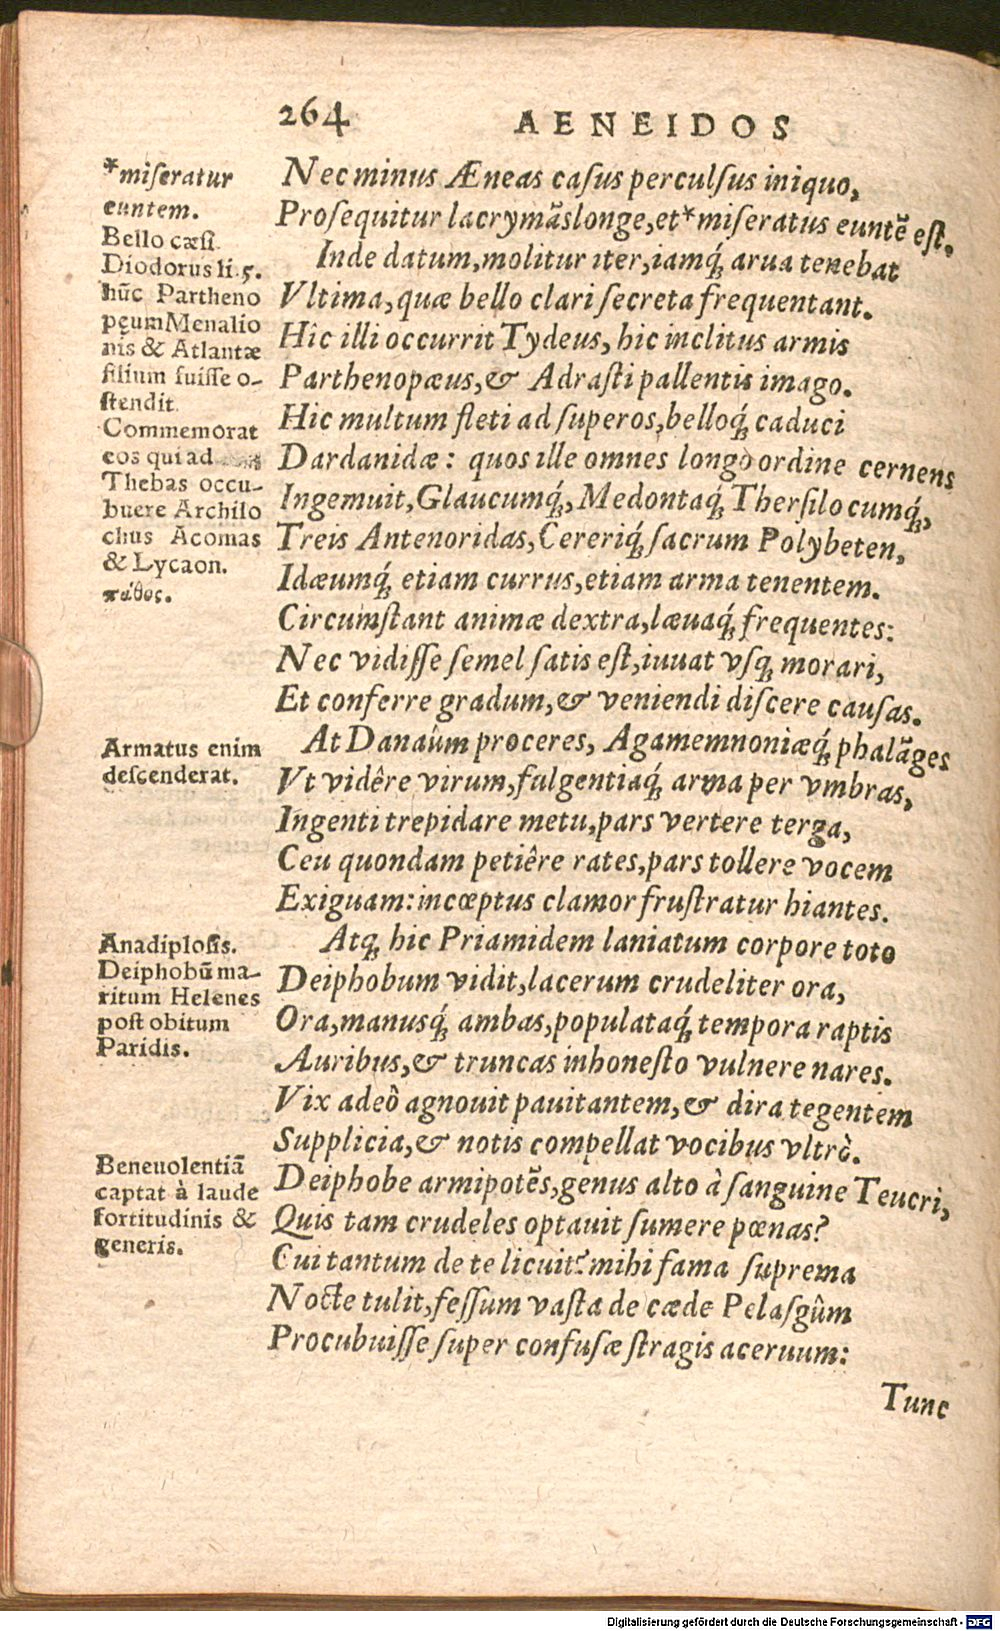 264 AENEIDOS
*miſeratur
euntem.
Bello cæſi.
Diodorus li. 5.
hūc Partheno
pęum Menalio
nis & Atlantæ
filium fuiſſe o-
ſtendit.
Commemorat
eos qui ad
Thebas occu-
buere Archilo
chus Acomas
& Lycaon.
πάθος.
Armatus enim
deſcenderat.
Anadiploſis.
Deiphobū ma-
ritum Helenes
poſt obitum
Paridis.
Beneuolentiā
captat à laude
fortitudinis &
generis.
Nec minus Æneas caſus perculſus iniquo,
Proſequitur lacrymās longe, et *miſeratus euntē eſt.
Inde datum, molitur iter, iamq́; arua tenebat
Vltima, quæ bello clari ſecreta frequentant.
Hîc illi occurrit Tydeus, hic inclitus armis
Parthenopæus, & Adraſti pallentis imago.
Hic multum fleti ad ſuperos, belloq́; caduci
Dardanidæ: quos ille omnes longo ordine cernens
Ingemuit, Glaucumq́;, Medontaq́; Therſilocumq́;,
Treis Antenoridas, Cereriq́; ſacrum Polybeten,
Idæumq́; etiam currus, etiam arma tenentem.
Circumſtant animæ dextra, læuaq́; frequentes:
Nec vidiſſe ſemel ſatis eſt, iuuat vſq; morari,
Et conferre gradum, & veniendi diſcere cauſas.
At Danaûm proceres, Agamemnoniæq́; phalāges
Vt vidêre virum, fulgentiaq́; arma per vmbras,
Ingenti trepidare metu, pars vertere terga,
Ceu quondam petiêre rates, pars tollere vocem
Exiguam: incœptus clamor fruſtratur hiantes.
Atq; hic Priamidem laniatum corpore toto
Deiphobum vidit, lacerum crudeliter ora,
Ora, manusq́; ambas, populataq́; tempora raptis
Auribus, & truncas inhoneſto vulnere nares.
Vix adeò agnouit pauitantem, & dira tegentem
Supplicia, & notis compellat vocibus vltrò.
Deiphobe armipotēs, genus alto à ſanguine Teucri,
Quis tam crudeles optauit ſumere pœnas?
Cui tantum de te licuit? mihi fama ſuprema
Nocte tulit, feſſum vaſta de cæde Pelaſgûm
Procubuiſſe ſuper confuſæ ſtragis aceruum:
Tunc
Digitalisierung gefördert durch die Deutsche Forschungsgemeinschaft - DFG